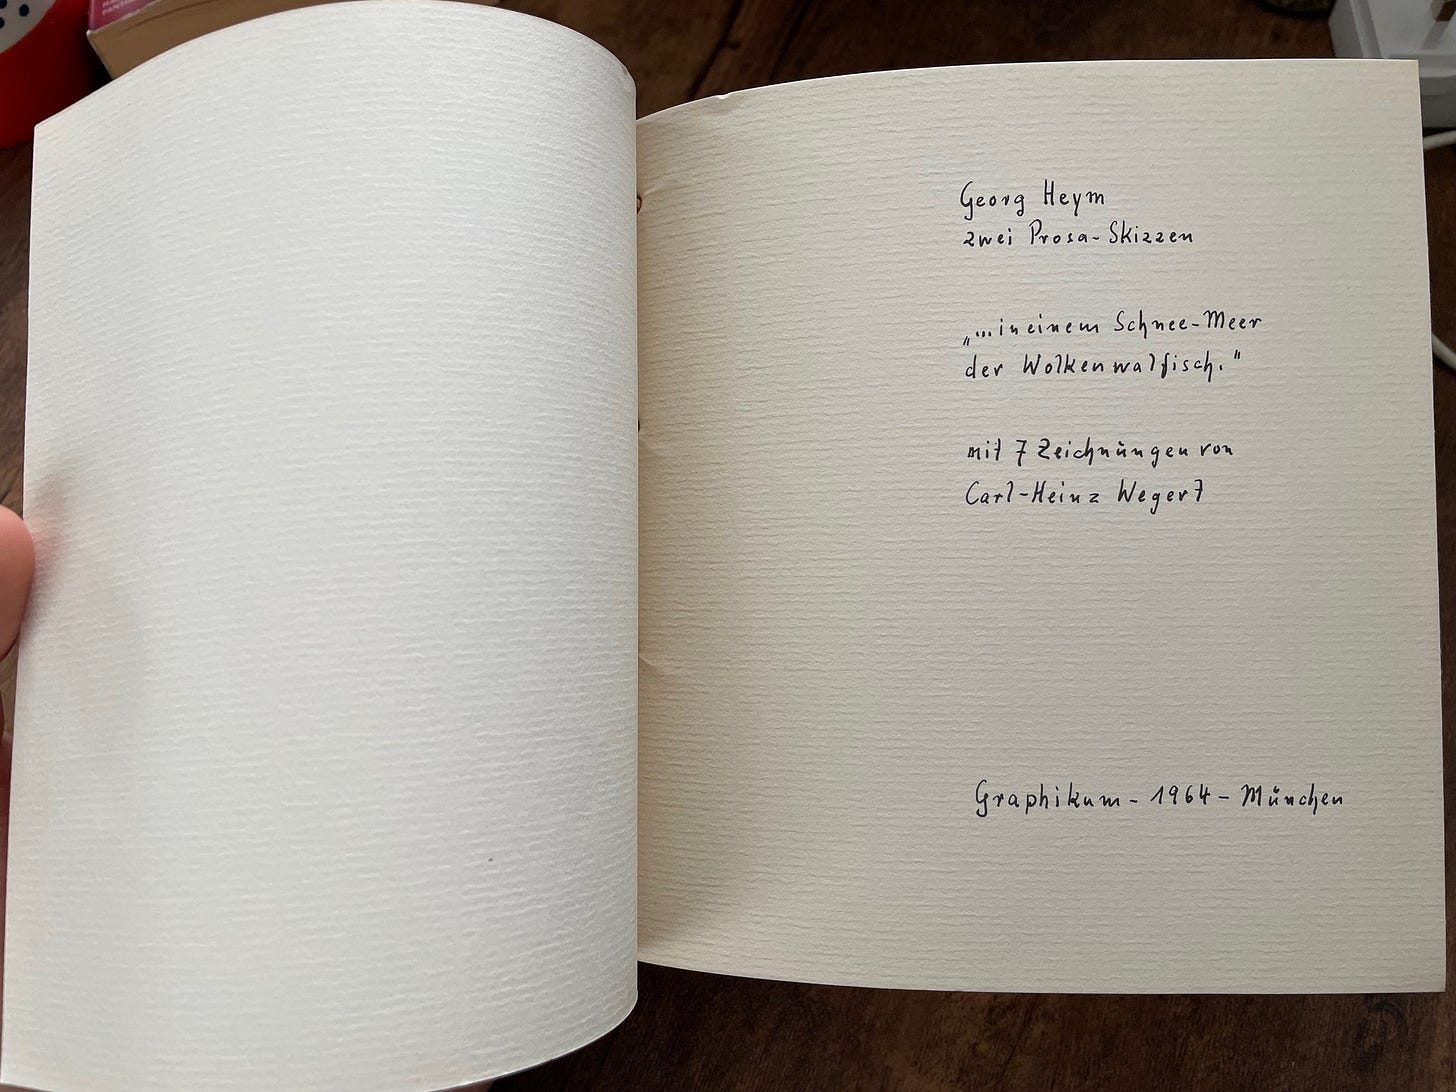 Georg Heym
zwei Prosa-Skizzen
„...in einem Schnee-Meer
der Wolkenwalfisch."
mit 7 Zeichnungen von
Carl-Heinz Wegert
Graphikum - 1964 - München